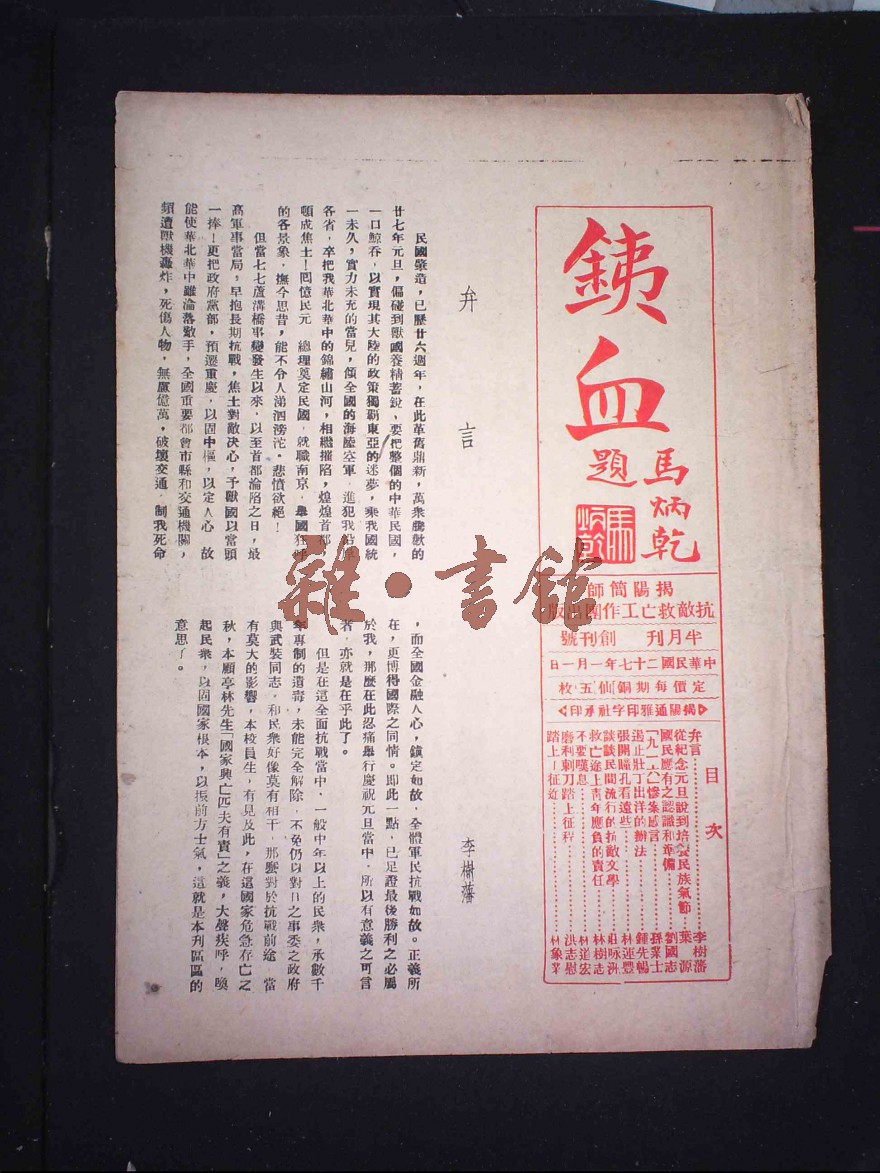 銕血
馬炳乾
題
揭陽簡師
抗敵救亡工作團出版
半月刊 創刊號
中華民國二十七年一月一日
定價每期銅仙五枚
揭關通雅印字社承印
目次
弁言……李樹藩
從紀念元旦說到培養民族氣節……葉源
國民應有之認識和準備……劉國志
「九一八」慘案感言……孫業士
遏止壯丁出洋的辦法……鍾先暢
張開瞳孔看遠些……林運豐
談談民間流行的抗敵文學……莊咏洲
救亡途上青年應負的責任……林樹志
不要嘆息……林道宏
磨利刺刀踏上征程……洪志慰
踏上征途……林象業
弁言
李樹藩
民國肇造，已歷廿六週年，在此革舊鼎新，萬衆騰歡的
廿七年元旦，偏碰到獸國養精蓄銳，要把整個的中華民國，
一口鯨吞，以實現其大陸的政策獨霸東亞的迷夢，乘我國統
一未久，實力未充的當兒，傾全國的海陸空軍，進犯我沿
各省，卒把我華北華中的錦繡山河，相繼摧陷，煌煌首都
頓成焦土！囘憶民元 總理奠定民國，就職南京，舉國狂
的各景象，撫今思昔，能不令人涕泗滂沱，悲憤欲絕！
但當七七蘆溝橋事變發生以來，以至首都淪陷之日，最
高軍事當局，早抱長期抗戰，焦土對敵决心，予獸國以當頭
一捧！更把政府黨部，預遷重慶，以固中樞，以定人心 故
能使華北華中雖淪落敵手，全國重要都會市縣和交通機關，
頻遭獸機轟炸，死傷人物，無慮億萬，破壞交通，制我死命
，而全國金融人心，鎮定如故，全體軍民抗戰如故。正義所
在，更博得國際之同情。即此一點，已足證最後勝利之必屬
於我，那麽在此忍痛舉行慶祝元旦當中，所以有意義之可言
者，亦就是在乎此了。
但是在這全面抗戰當中，一般中年以上的民衆，承數千
年專制的遺毒，未能完全解除，不免仍以對日之事委之政府
與武裝同志，和民衆好像莫有相干，那麽對於抗戰前途，當
有莫大的影響，本校員生，有見及此，在這國家危急存亡之
秋，本顧亭林先生「國家興亡匹夫有責」之義，大聲疾呼，喚
起民衆，以固國家根本，以振前方士氣，這就是本刋區區的
意思了。
雜·書館